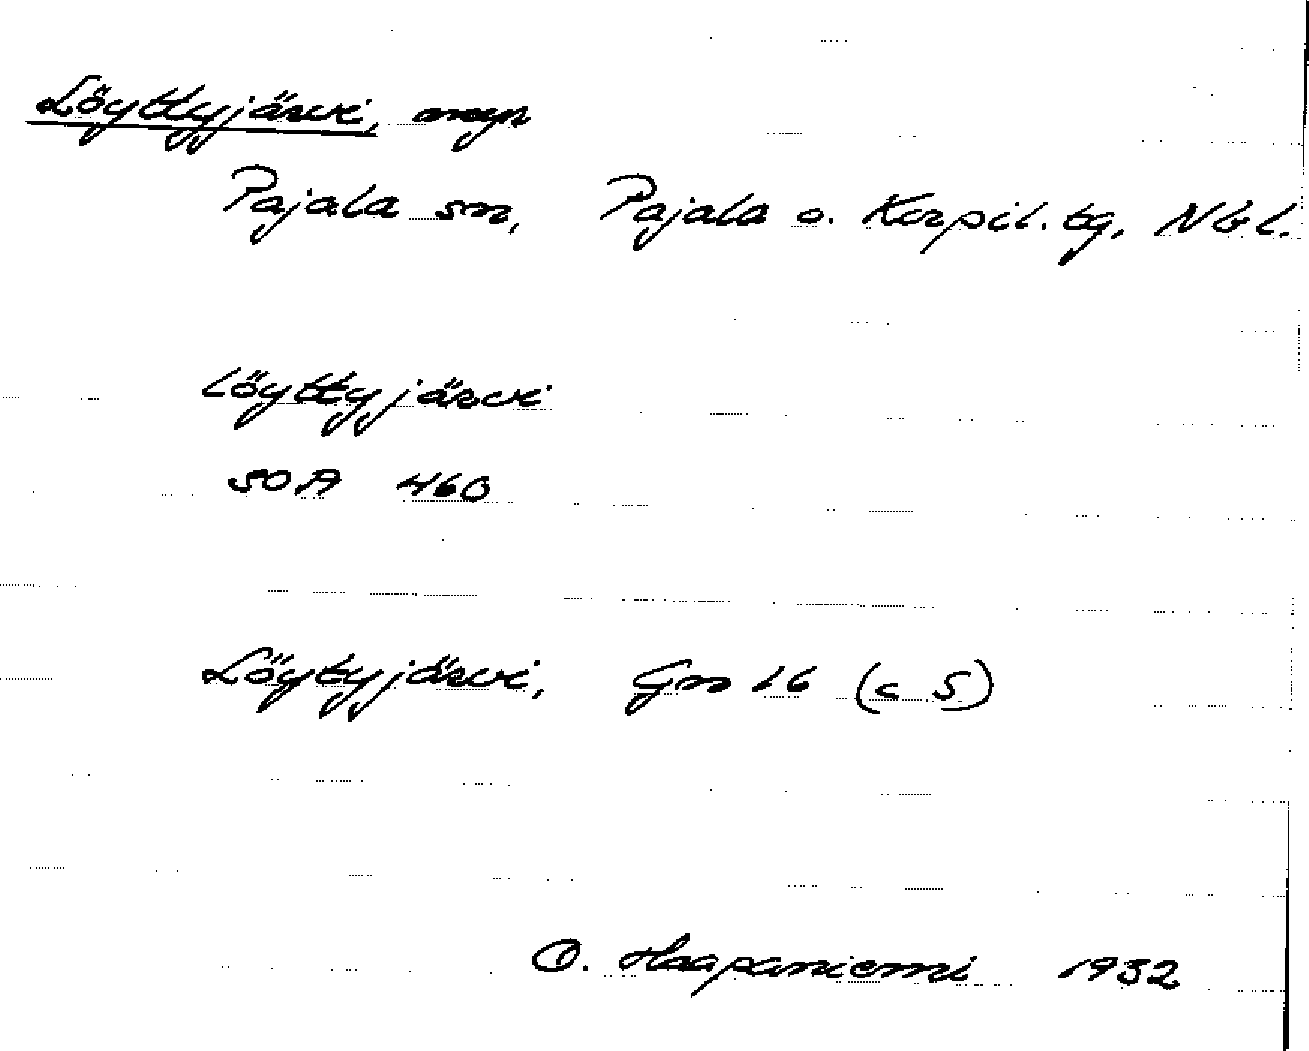 Löyttyjärvi, myr
Pajala sn, Pajala o. Korpil. tg, Nb l.
Löyttyjärvi
SOA 460
Löytyjärvi, Gm 16 (c 5)
O. Haapaniemi 1932